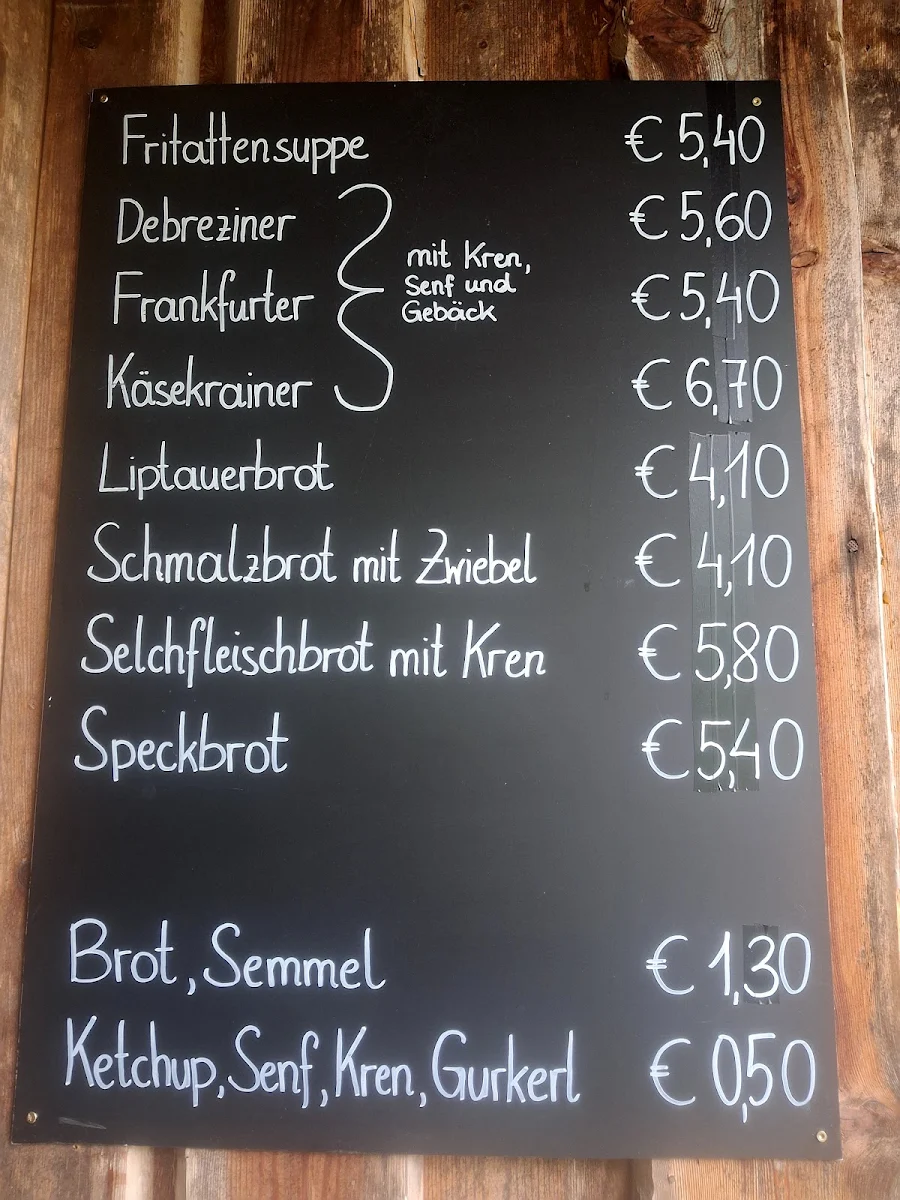 Fritattensuppe € 5,40
Debreziner € 5,60
mit Kren,
Senf und
Gebäck
Frankfurter € 5,40
Käsekrainer € 6,70
Liptauerbrot € 4,10
Schmalzbrot mit Zwiebel € 4,10
Selchfleischbrot mit Kren € 5,80
Speckbrot € 5,40
Brot, Semmel € 1,30
Ketchup, Senf, Kren, Gurkerl € 0,50